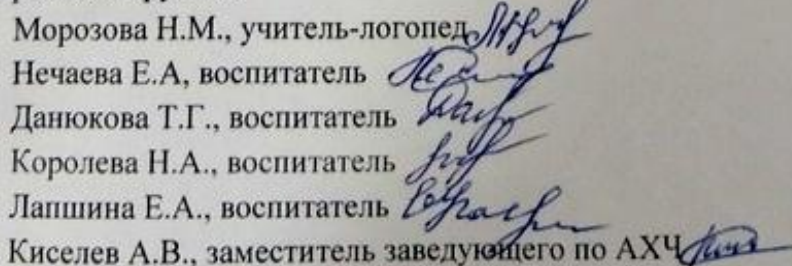 Морозова Н.М., учитель-логопед
Нечаева Е.А, воспитатель
Данюкова Т.Г., воспитатель
Королева Н.А., воспитатель
Лапшина Е.А., воспитатель
Киселев А.В., заместитель заведующего по АХЧ